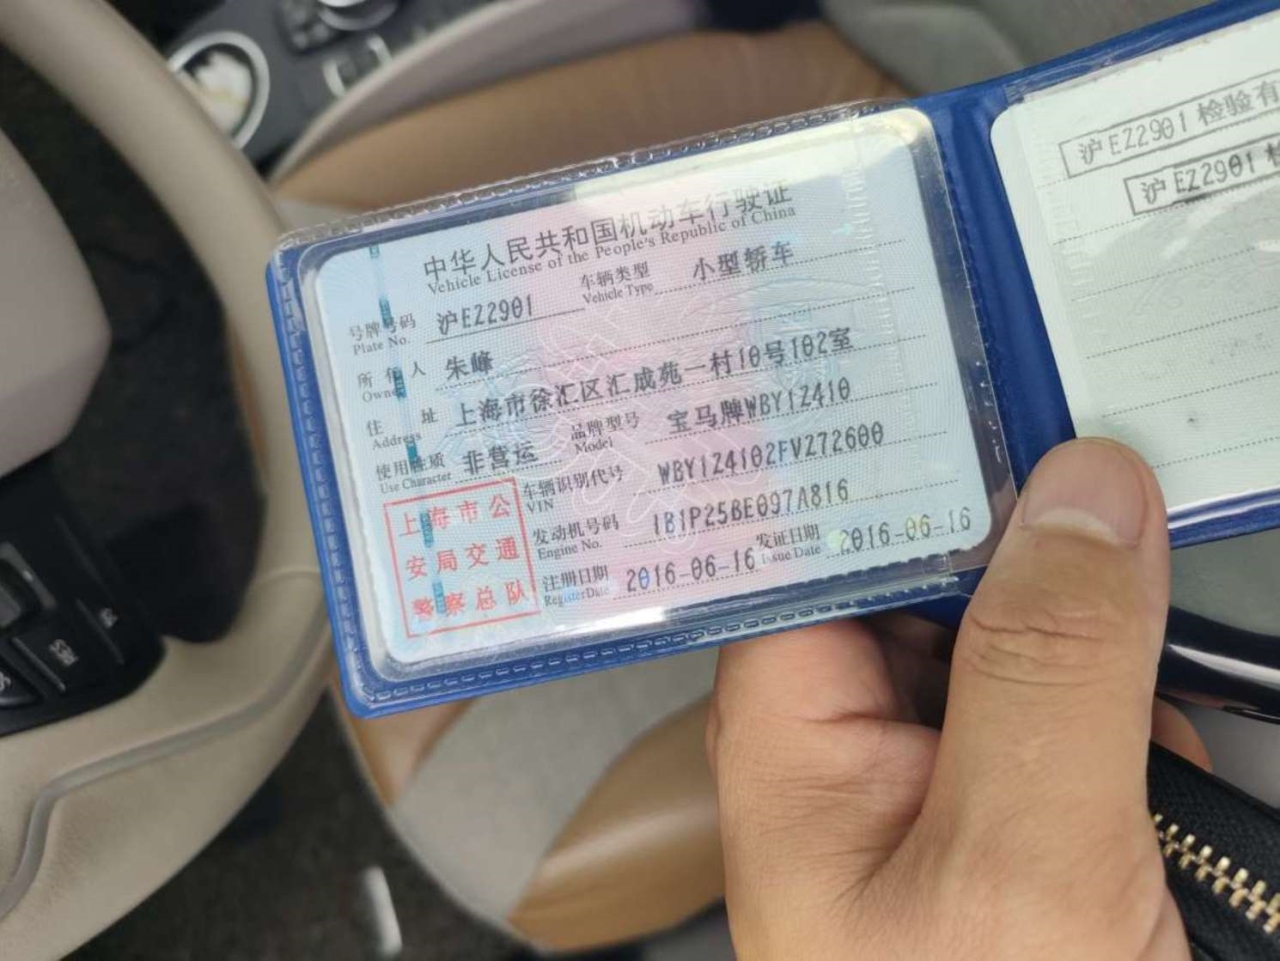 中华人民共和国机动车行驶证
Vehicle License of the People's Republic of China
号牌号码 沪EZ2901 车辆类型 小型轿车
Plate No. Vehicle Type
所有人 朱峰
Owner
住址 上海市徐汇区汇成苑一村10号102室
Address
使用性质 非营运 品牌型号 宝马牌WBY1Z410
Use Character Model
车辆识别代号 WBY1Z4102FV272600
VIN
发动机号码 1B1P25BE097A816
Engine No.
注册日期 2016-06-16 发证日期 2016-06-16
Register Date Issue Date
上海市公
安局交通
警察总队
沪EZ2901 检验有
沪EZ2901